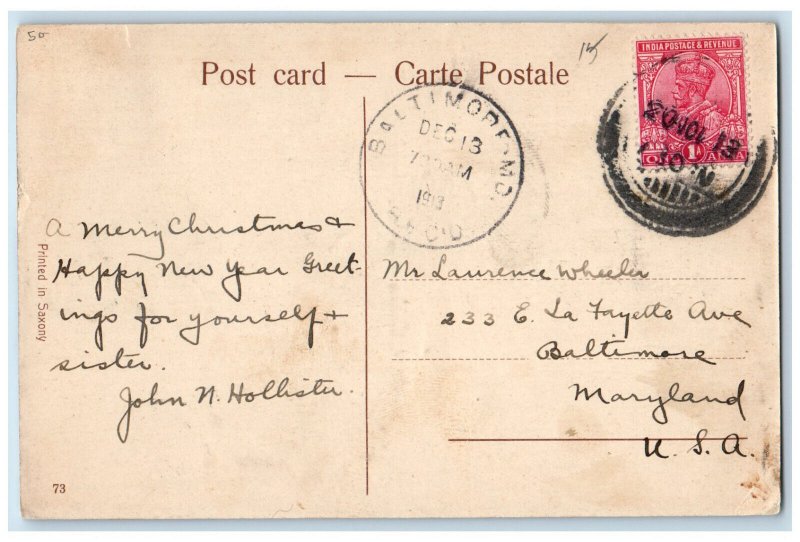 50
15
Post card — Carte Postale
INDIA POSTAGE & REVENUE
ONE 1A ANNA
20 NOV 13
BALTIMORE, MD.
DEC 13
730AM
1913
REC'D
A Merry Christmas &
Happy New Year Greet-
ings for yourself &
sister.
John N. Hollister.
Mr Laurence Wheeler
233 E. La Fayette Ave
Baltimore
Maryland
U.S.A.
Printed in Saxony
73